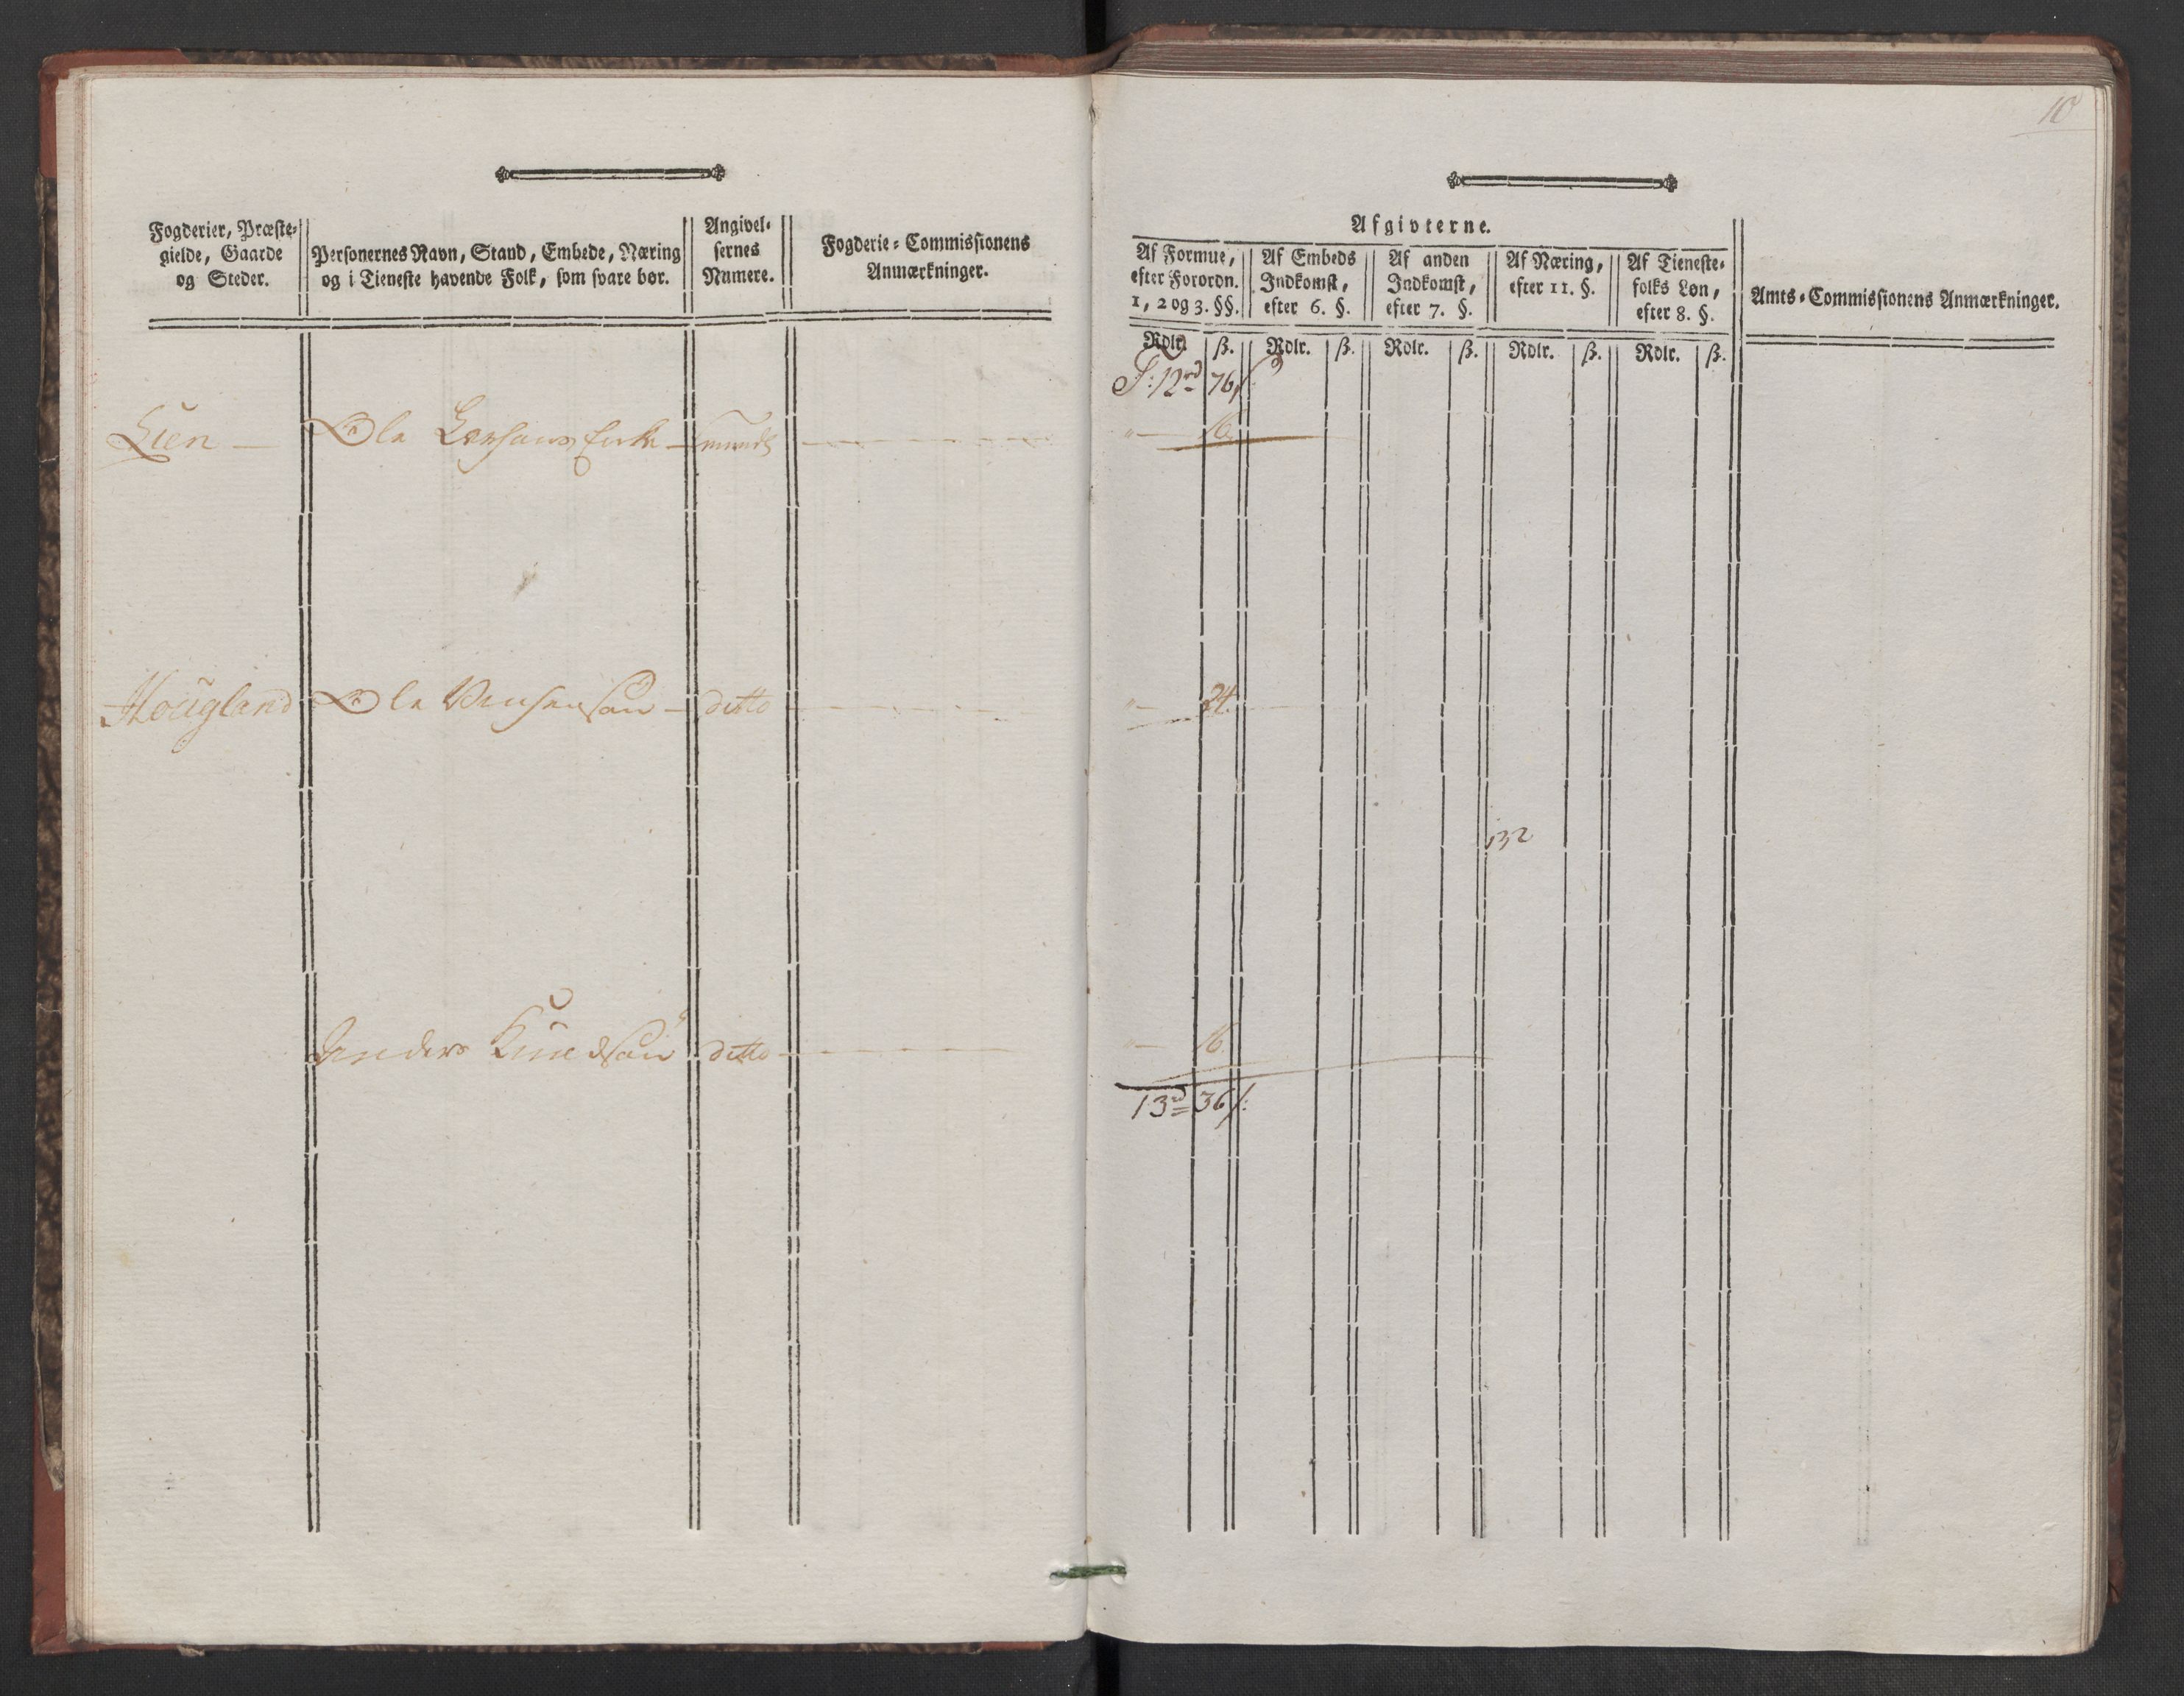 Fogderier, Præste-
gielde, Gaarde
og Steder.
Personernes Navn, Stand, Embede, Næring
og i Tieneste havende Folk, som svare bør.
Angivel-
sernes
Numere.
Fogderie-Commissionens
Anmærkninger.
Lien - Ole Larsens Enke -
Hougland Ole - ditto
Anders Knudsøn ditto
10
Afgivterne.
Af Formue,
efter Forordn.
1, 2 og 3. §§.
Af Embeds
Indkomst,
efter 6. §.
Af anden
Indkomst,
efter 7. §.
Af Næring,
efter 11. §.
Af Tieneste-
folks Løn,
efter 8. §.
Amts-Commissionens Anmærkninger.
Rdlr. ß. Rdlr. ß. Rdlr. ß. Rdlr. ß. Rdlr. ß.
T: 12rd 76ß
" - 16.
" - 24.
132
" - 16.
13rd 36ß: